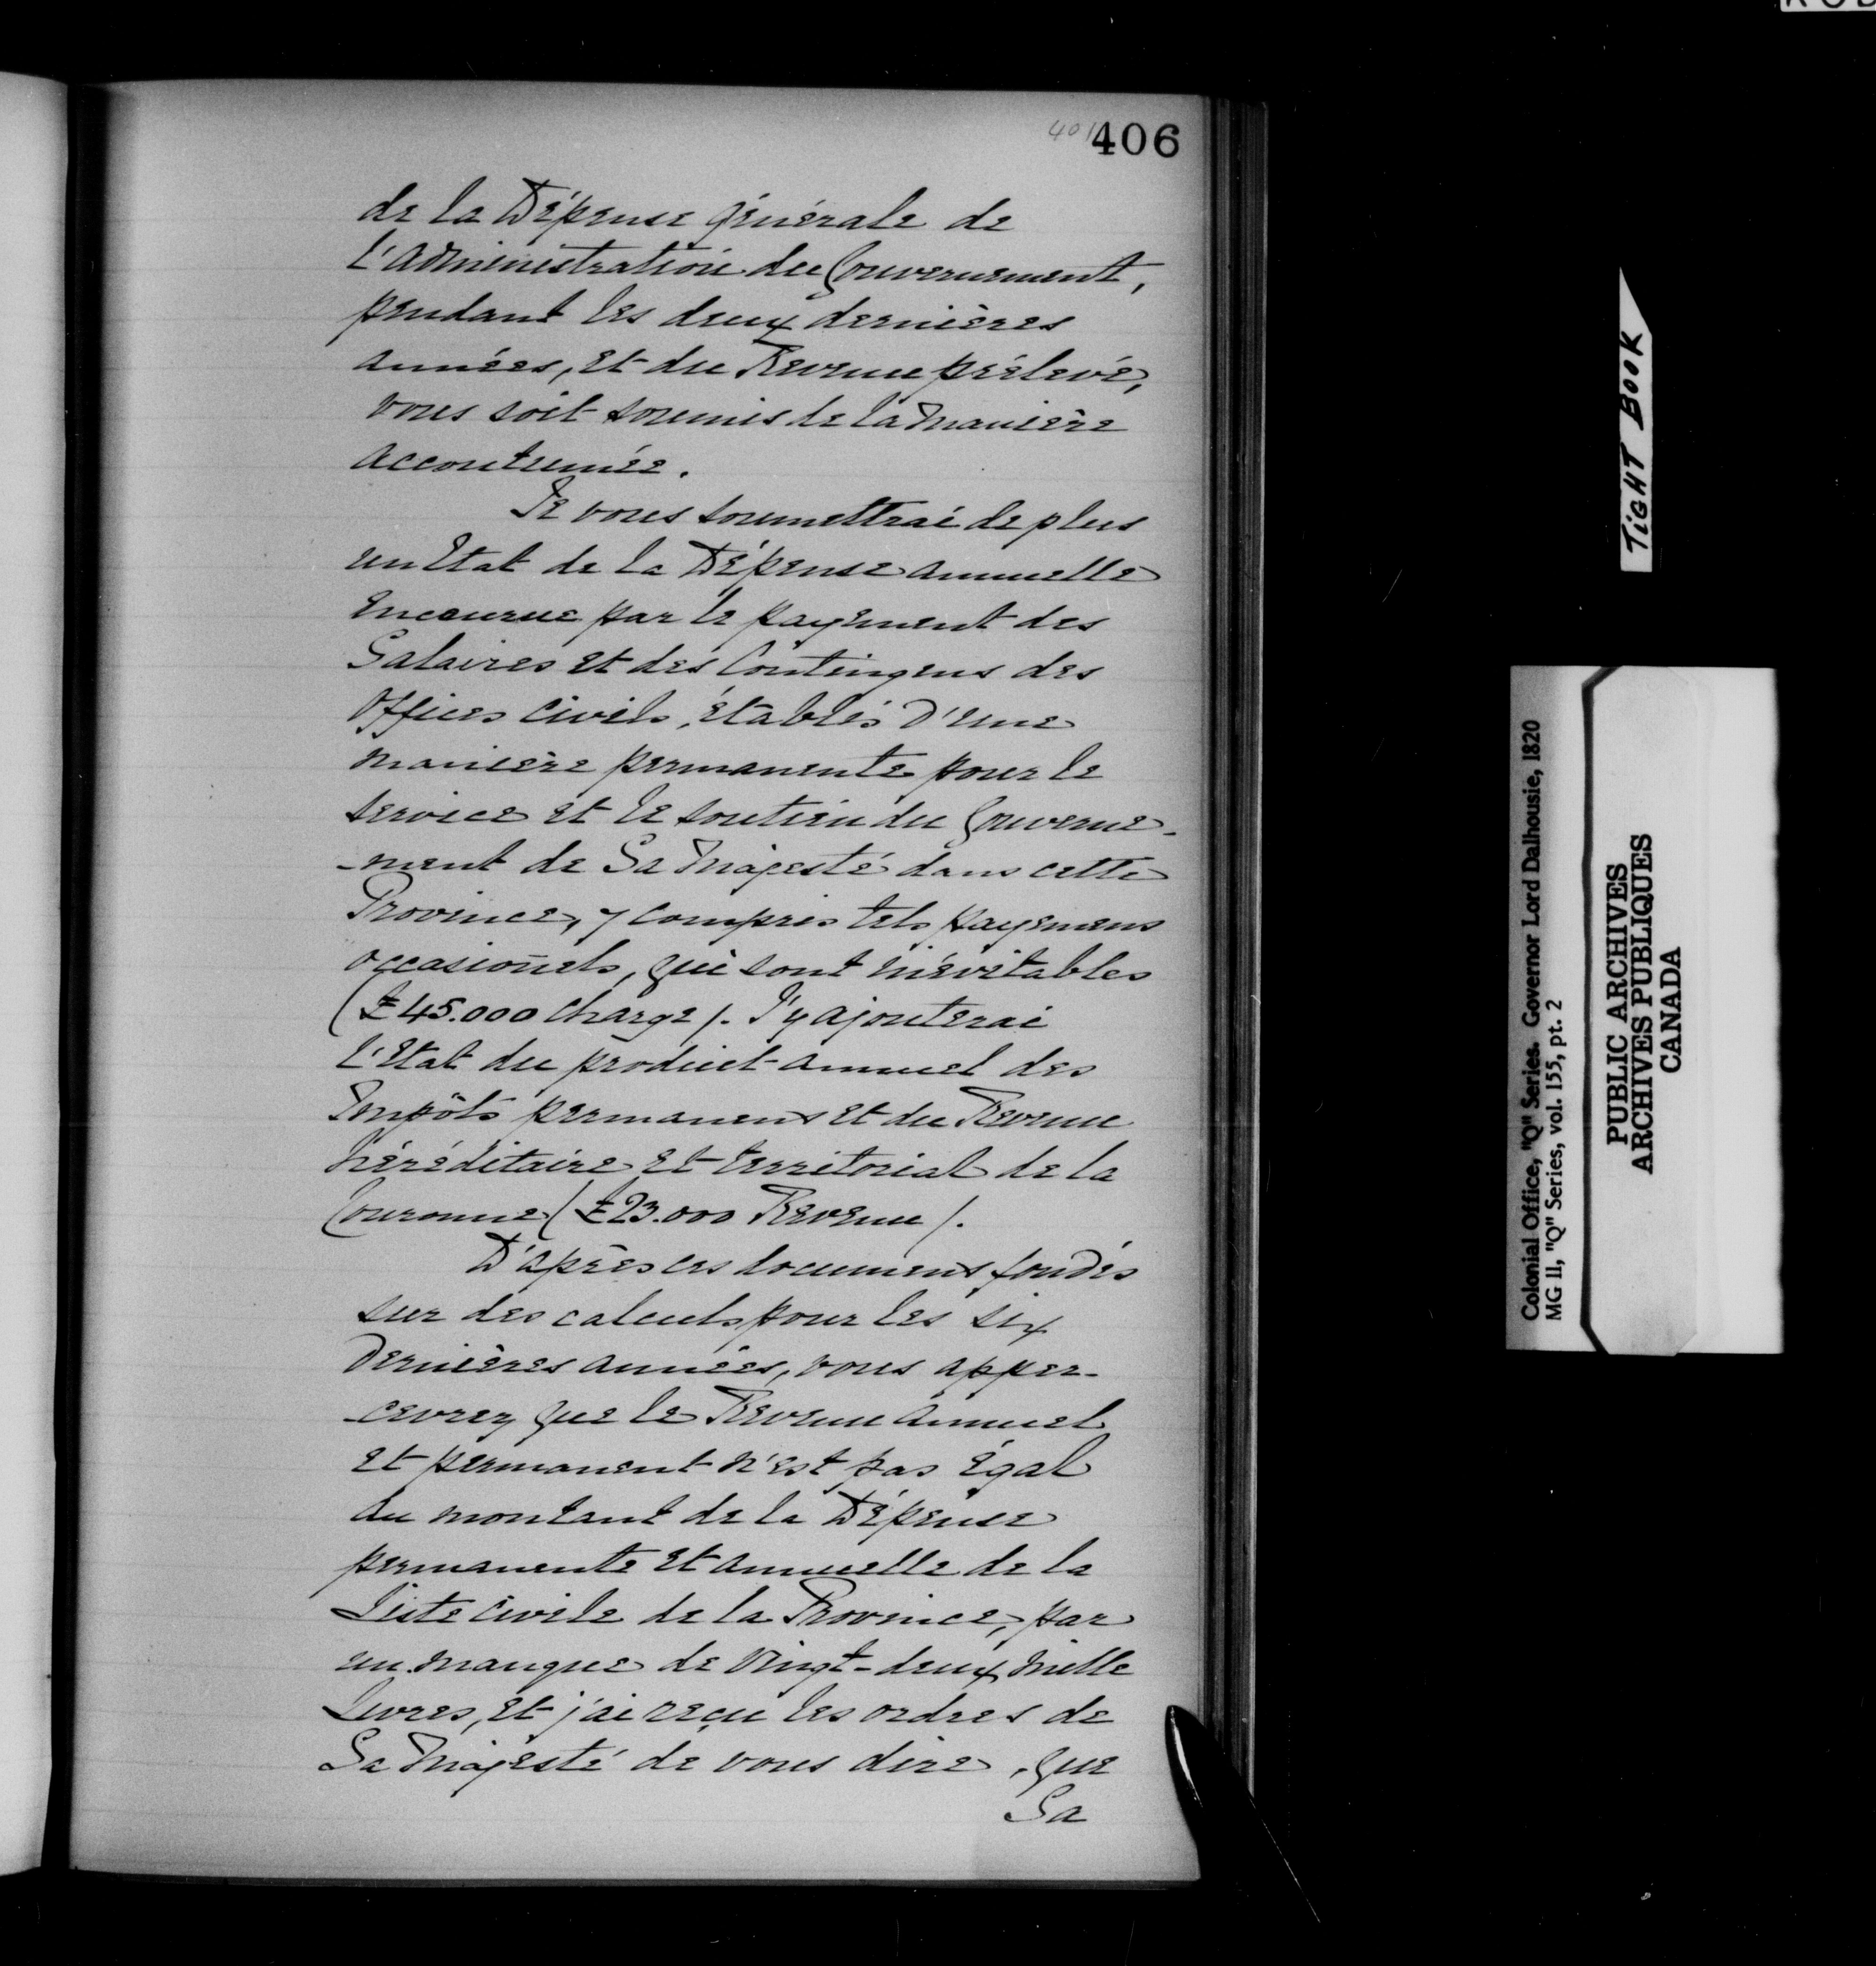 401
406
de la Dépense générale de
l'administration du Gouvernement,
pendant les deux dernières
années, et du Revenu prélevé,
vous soit soumis de la manière
accoutumée.
Je vous soumettrai de plus
un Etat de la Dépense annuelle
encourue par le payement des
Salaires et des Contingens des
Offices civils, établis d'une
manière permanente pour le
service et le soutien du Gouverne-
-ment de Sa Majesté dans cette
Province, y compris tels payemens
occasionels, qui sont inévitables
(£45.000 charge). J'y ajouterai
l'Etat du produit annuel des
Impôts permanens et du Revenu
héréditaire et territorial de la
Couronne (£23.000 Revenu).
D'après ces documens fondés
sur des calculs pour les six
dernières années, vous apper-
-cevrez que le Revenu annuel
et permanent n'est pas égal
au montant de la Dépense
permanente et annuelle de la
Liste civile de la Province, par
un manque de vingt-deux mille
Livres, et j'ai reçu les ordres de
Sa Majesté de vous dire, que
Sa
TIGHT BOOK
Colonial Office, "Q" Series. Governor Lord Dalhousie, 1820
MG 11, "Q" Series, vol. 155, pt. 2
PUBLIC ARCHIVES
ARCHIVES PUBLIQUES
CANADA